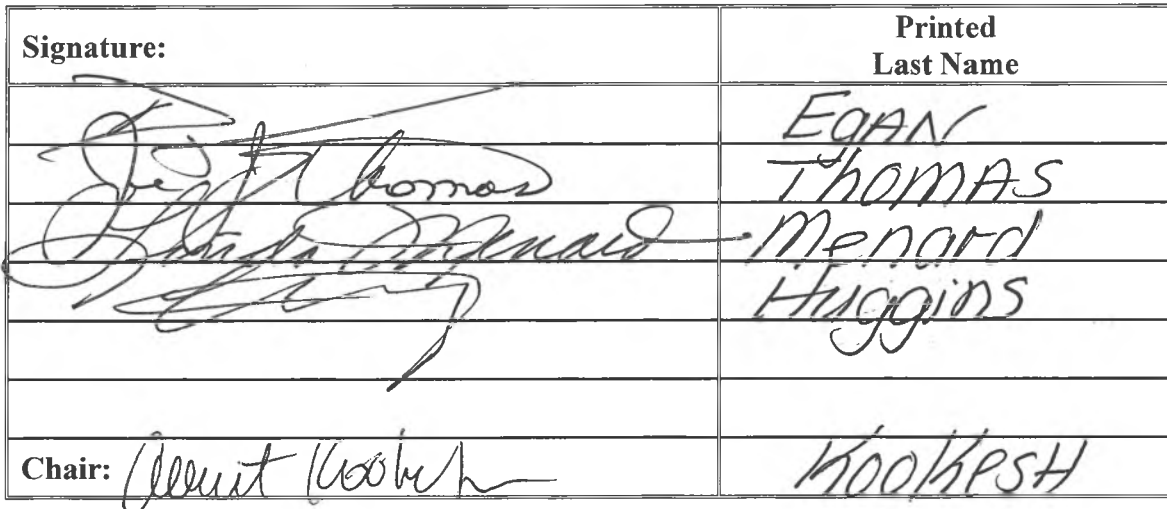 Signature: Printed
Last Name
EGAN
Joe Thomas THOMAS
Linda Menard Menard
Huggins
Chair: Albert Kookesh KOOKESH